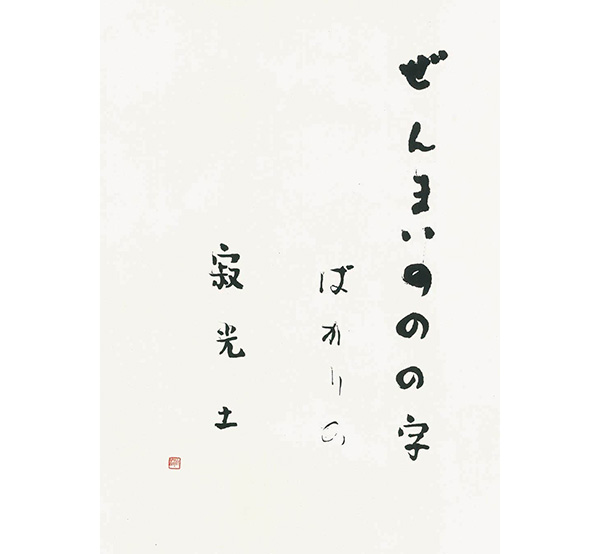 ぜんまいののの字
ばかりの
寂光土